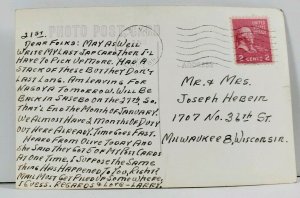 PHOTO POST CARD
21st.
DEAR FOLKS: MAY AS WELL
WRITE MY LAST JAP CARD THEN I'LL
HAVE TO PICK UP MORE. HAD A
STACK OF THESE BUT THEY DON'T
LAST LONG. AM LEAVING FOR
NAGOYA TOMORROW. WILL BE
BACK IN SASEBO ON THE 27TH, SO
THAT'L END THE MONTH OF JANUARY.
WE ALMOST HAVE 2 MONTHS OF DUTY
OUT HERE ALREADY. TIME GOES FAST.
HEARD FROM OLIVE TODAY AND
SHE SAID THEY GOT 5 OF MY POST CARDS
AT ONE TIME, I SUPPOSE THE SAME
THING HAS HAPPENED TO YOU, EITHER
MAIL MUST GET FILED UP SOMEWHERE,
I GUESS. REGARDS & LOVE - LARRY.
UNITED STATES POSTAGE
2 CENTS 2
MR. & MRS.
JOSEPH HEBEIN
1707 NO. 36TH ST.
MILWAUKEE 8, WISCONSIN.